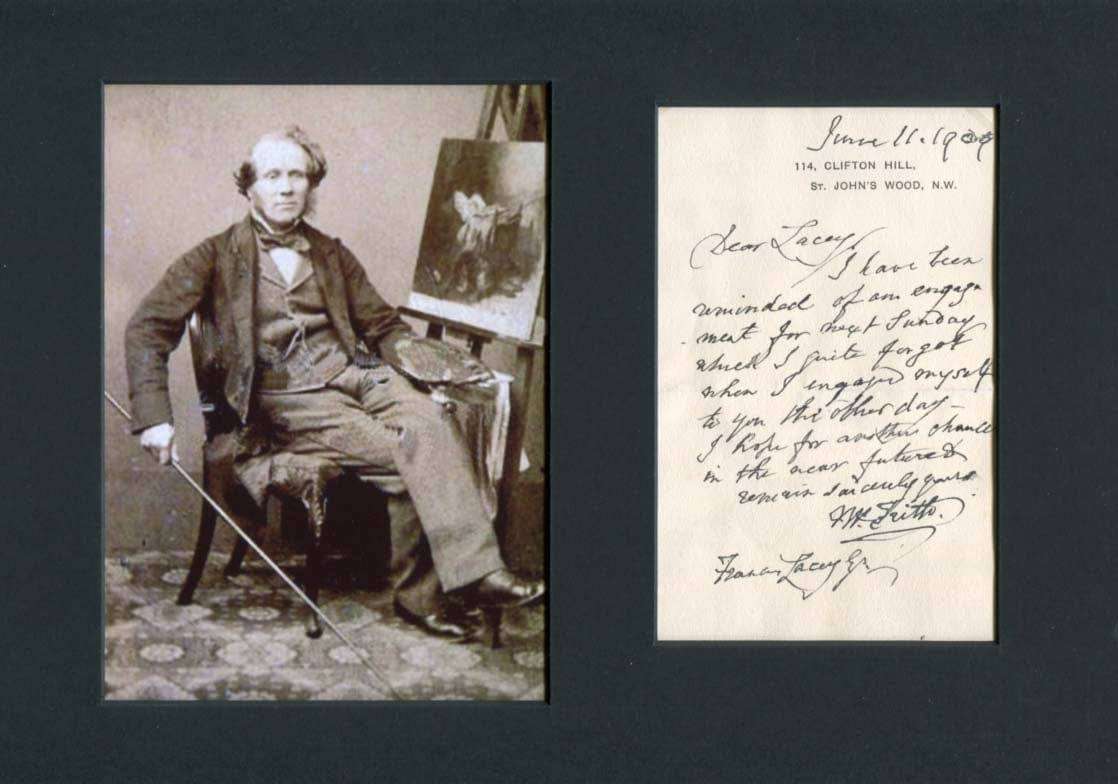 June 11. 190
114, CLIFTON HILL,
ST. JOHN'S WOOD, N.W.
Dear Lacey
I have been
reminded of an engage
ment for next Sunday
which I quite forgot
when I engaged myself
to you the other day –
I hope for another chance
in the near future &
remain sincerely yours
W.P. Frith.
Francis Lacey Esq.